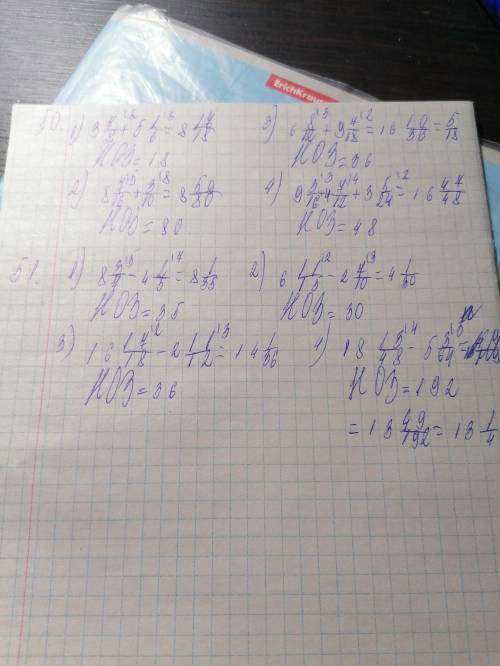 ErichKrause
50. 1) 3 7/9 + 5 1/6 = 8 17/18
НОЗ = 18
2) 8 7/16 + 3/10 = 8 59/80
НОЗ = 80
3) 6 5/12 + 9 7/18 = 16 10/36 = 5/18
НОЗ = 36
4) 9 3/16 + 4 7/12 + 3 5/24 = 16 47/48
НОЗ = 48
51. 1) 4 1/5 = 8 1/35
НОЗ = 35
2) 6 11/15 - 2 7/10 = 4 1/30
НОЗ = 30
3) 16 17/18 - 2 11/12 = 14 1/36
НОЗ = 36
4) 18 15/48 - 5 3/64 =
НОЗ = 192
= 13 49/192 = 13 1/4